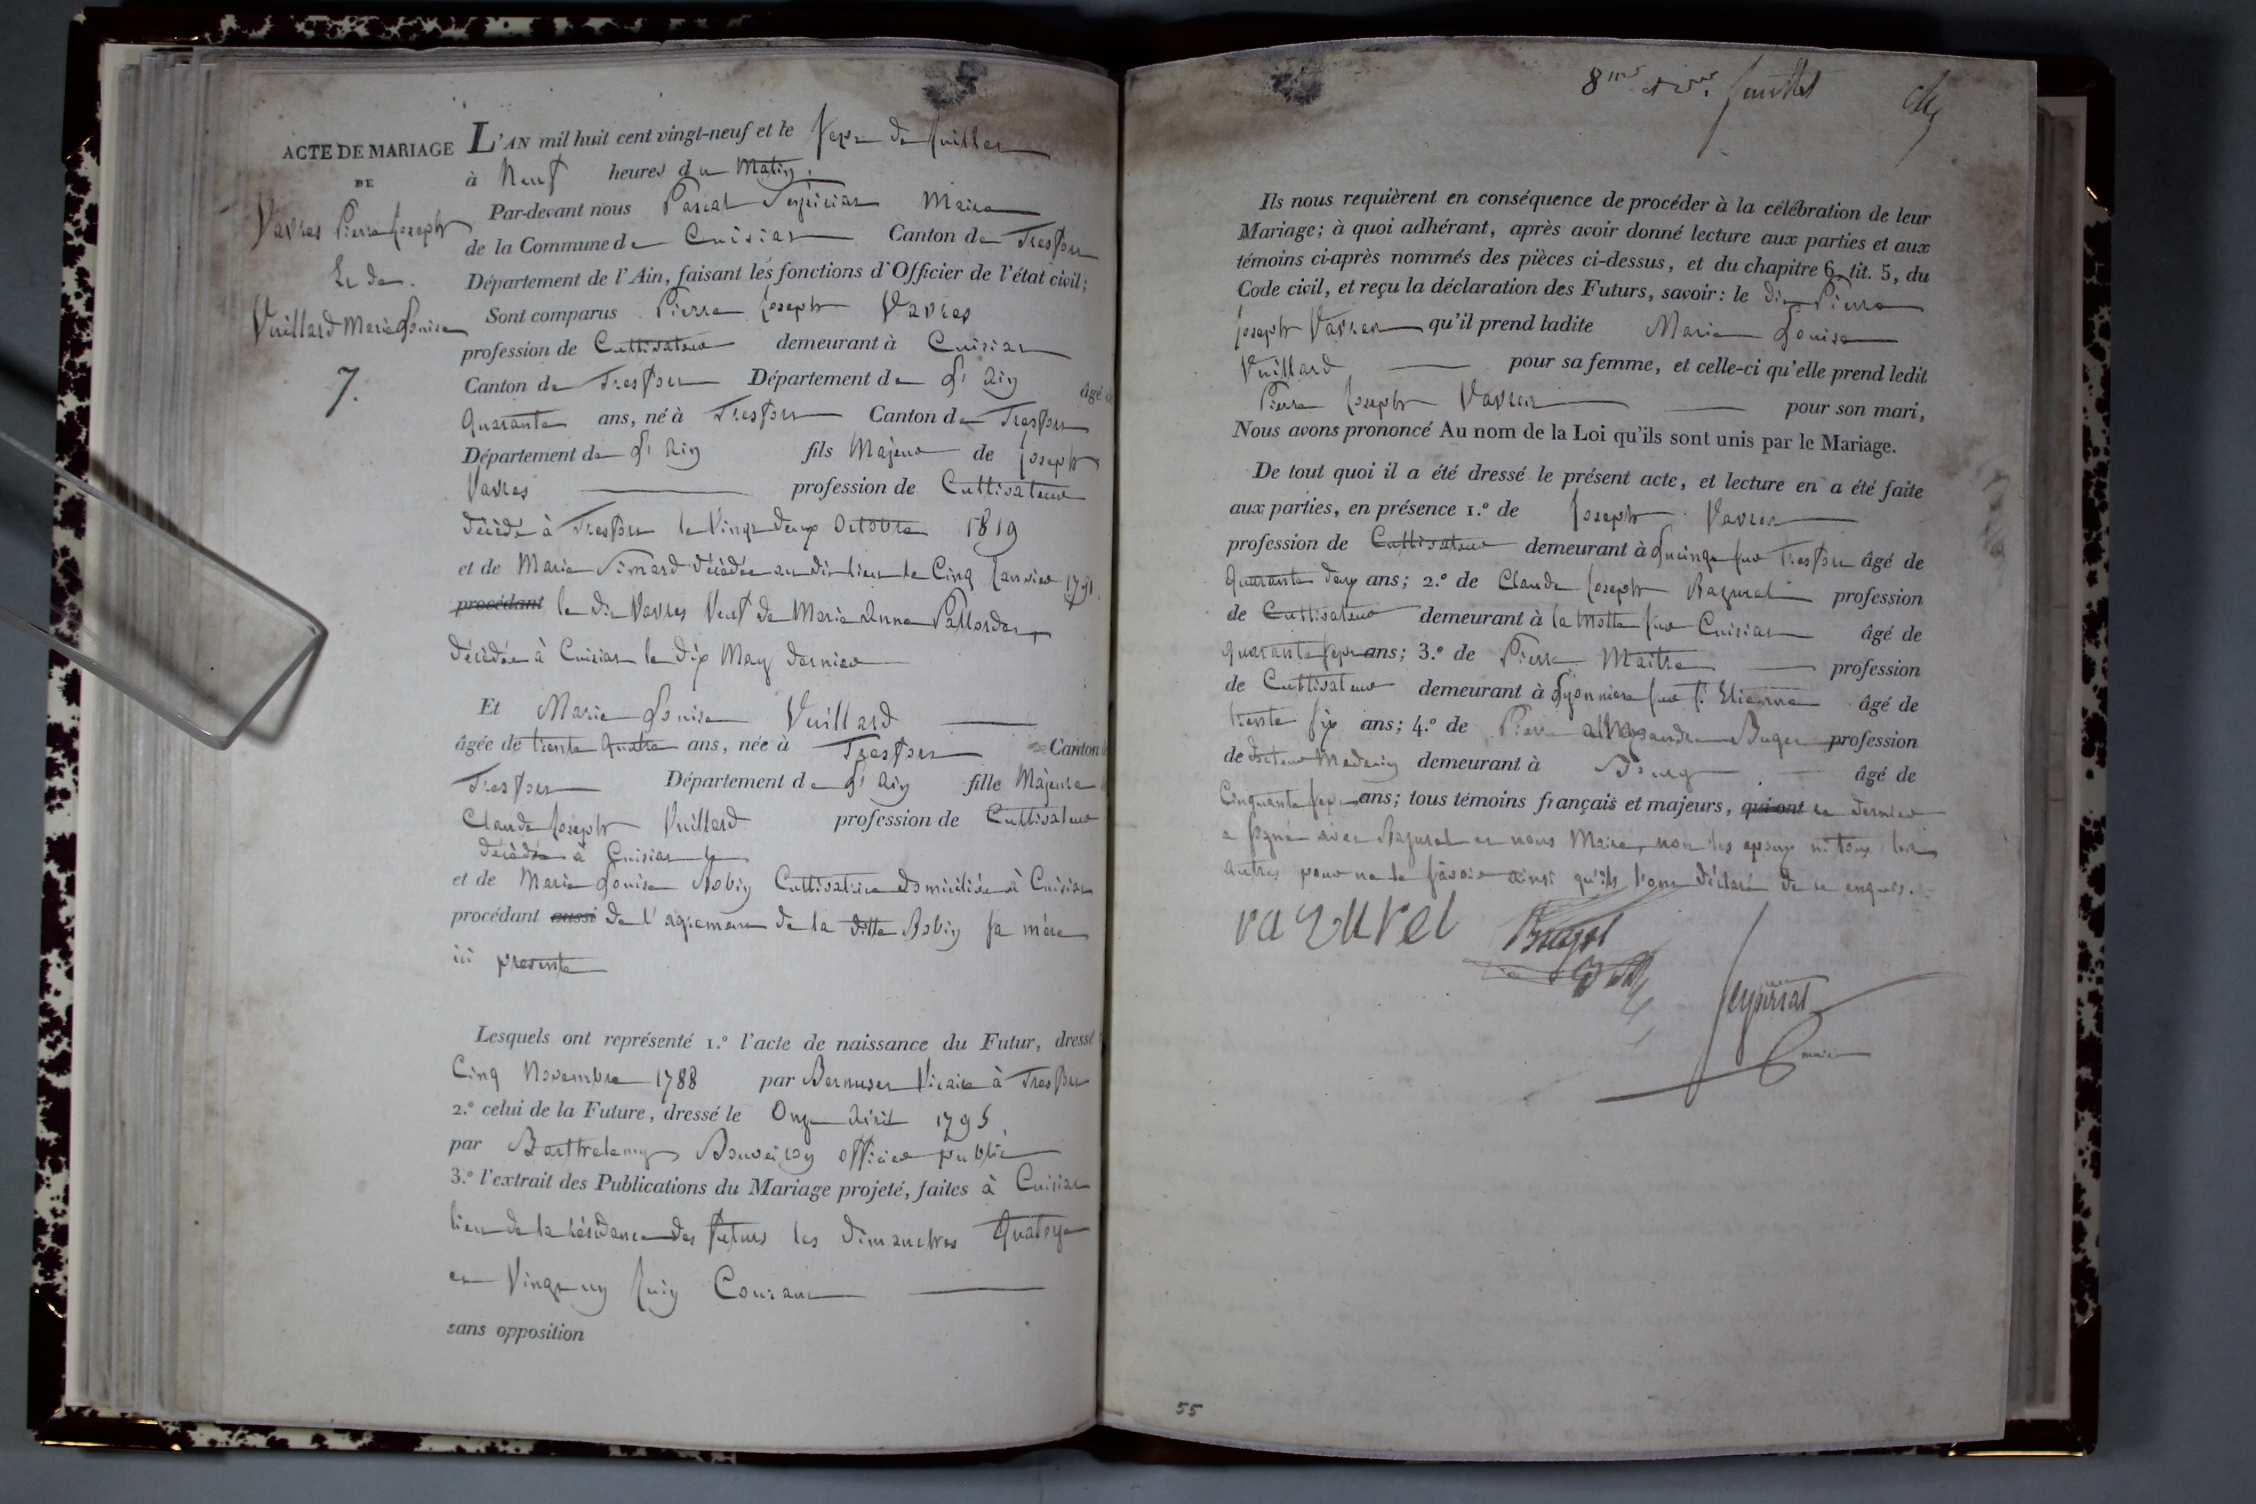 ACTE DE MARIAGE
DE
Vavres Pierre Joseph
Et de
Vuillard Marie Louise
7.
L'AN mil huit cent vingt-neuf et le sept de Juillet
à Neuf heures du Matin,
Par-devant nous Pascal Maire
de la Commune de Cuisiat Canton de Treffort
Département de l'Ain, faisant les fonctions d'Officier de l'état civil;
Sont comparus Pierre Joseph Vavres
profession de Cultivateur demeurant à Cuisiat
Canton de Treffort Département de L'Ain âgé
Quarante ans, né à Treffort Canton de Treffort
Département de L'Ain fils Majeur de Joseph
Vavres profession de Cultivateur
décédé à Treffort le Vingt deux Octobre 1819
et de Marie décédée au dit lieu le Cinq Janvier 1791
procédant le dit Vavres Veuf de Marie Anne
décédée à Cuisiat le dix May dernier
Et Marie Louise Vuillard
âgée de trente quatre ans, née à Treffort Canton
Treffort Département de L'Ain fille Majeure
Claude Joseph Vuillard profession de Cultivateur
décédé à Cuisiat
et de Marie Louise Robin Cultivatrice domiciliée à Cuisiat
procédant aussi de l'agrement de la ditte Robin sa mère
ici presente
Lesquels ont représenté 1.º l'acte de naissance du Futur, dressé
Cinq Novembre 1788 par Vicaire à Treffort
2.º celui de la Future, dressé le Onze Avril 1795
par Barthelemy officier public
3.º l'extrait des Publications du Mariage projeté, faites à Cuisiat
lieu de la résidence des futurs les dimanches Quatorze
et Vingt un Juin Courant
sans opposition
8me et der feuillet
Ils nous requièrent en conséquence de procéder à la célébration de leur
Mariage; à quoi adhérant, après avoir donné lecture aux parties et aux
témoins ci-après nommés des pièces ci-dessus, et du chapitre 6, tit. 5, du
Code civil, et reçu la déclaration des Futurs, savoir: le dit Pierre
Joseph Vavres qu'il prend ladite Marie Louise
Vuillard pour sa femme, et celle-ci qu'elle prend ledit
Pierre Joseph Vavres pour son mari,
Nous avons prononcé Au nom de la Loi qu'ils sont unis par le Mariage.
De tout quoi il a été dressé le présent acte, et lecture en a été faite
aux parties, en présence 1.º de Joseph Vavres
profession de Cultivateur demeurant à Lucinge sur Treffort âgé de
quarante deux ans; 2.º de Claude Joseph Razurel profession
de Cultivateur demeurant à la Motte sur Cuisiat âgé de
quarante sept ans; 3.º de Pierre Maitre profession
de Cultivateur demeurant à Lyonniere sur St. Etienne âgé de
trente six ans; 4.º de Pierre alexandre profession
de docteur Medecin demeurant à Bourg âgé de
Cinquante sept ans; tous témoins français et majeurs, qui ont ce dernier
a signé avec Razurel et nous Maire, non les epoux ni les deux
autres pour ne le savoir ainsi qu'ils l'ont déclaré de ce enquis.
razurel
maire
55